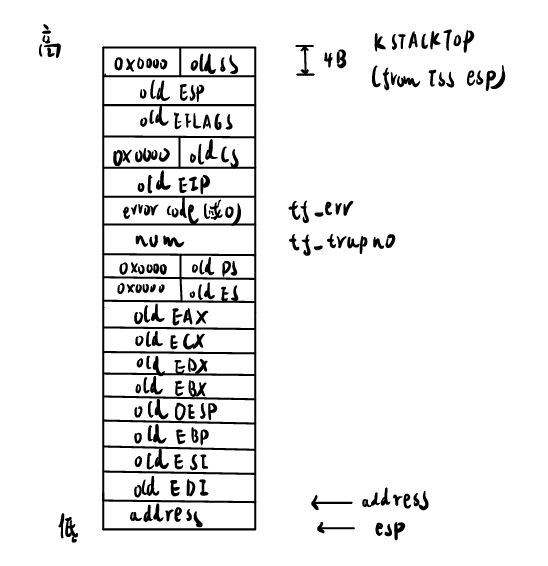 高
0x0000 old SS 4B KSTACKTOP
(from TSS esp)
old ESP
old EFLAGS
0x0000 old CS
old EIP
error code (或0) tf_err
num tf_trapno
0x0000 old DS
0x0000 old ES
old EAX
old ECX
old EDX
old EBX
old OESP
old EBP
old ESI
old EDI
address ← address
低 ← esp